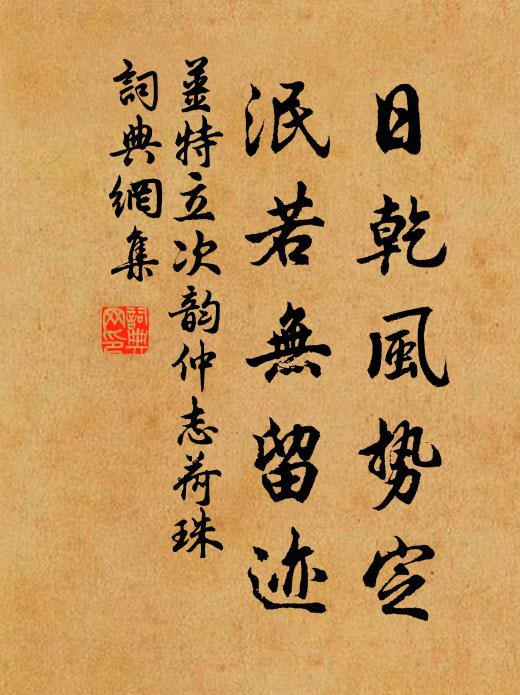 日乾風勢定
泯若無留迹
姜特立次韵仲志荷珠
詞典網集
詞典網印